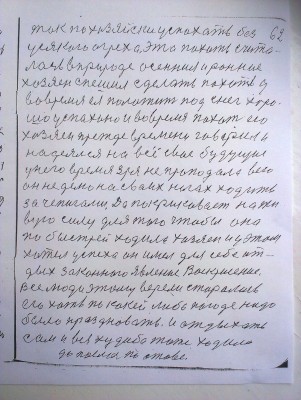 так по хозяйски успохать без 62
усякого греха, это похоть счита-
лась в природе осенния и ранние
хозяен спешил сделать похоть и
вовремя ея положить под снег хоро-
шо успахано и вовремя похот его
хозяен прежде времени говорил и
надеялся на всё свае будущия
унего время зря не пропадало всего
он неделю на сваих ногах ходить
за чепигами, да покрикивает на жи
вую силу для того чтобы она
по быстрей ходила хозяен и у этом
хотел успеха он имел для себе от-
дых законного явление Воскрисение.
Все люди этому верели старались
его хать по какей либо погоде надо
было праздновать. и отдыхать
сам и вся худиба тоже ходила
да паелась по стове.